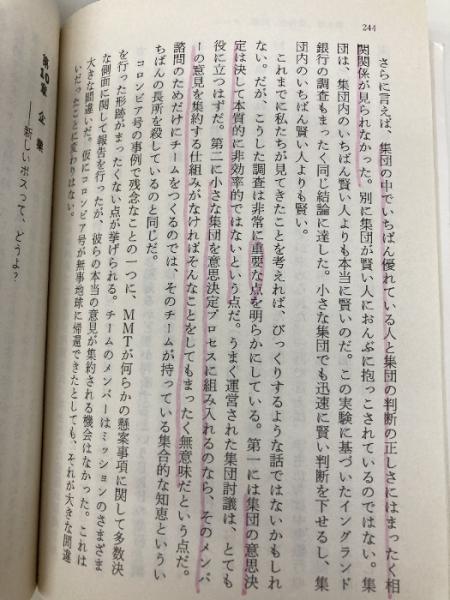 244
さらに言えば、集団の中でいちばん優れている人と集団の判断の正しさにはまったく相
関関係が見られなかった。別に集団が賢い人におんぶに抱っこされているのではない。集
団は、集団内のいちばん賢い人よりも本当に賢いのだ。この実験に基づいたイングランド
銀行の調査もまったく同じ結論に達した。小さな集団でも迅速に賢い判断を下せるし、集
団内のいちばん賢い人よりも賢い。
これまでに私たちが見てきたことを考えれば、びっくりするような話ではないかもしれ
ない。だが、こうした調査は非常に重要な点を明らかにしている。第一には集団の意思決
定は決して本質的に非効率的ではないという点だ。うまく運営された集団討議は、とても
役に立つはずだ。第二に小さな集団を意思決定プロセスに組み入れるのなら、そのメンバ
ーの意見を集約する仕組みがなければそんなことをしてもまったく無意味だという点だ。
諮問のためだけにチームをつくるのでは、そのチームが持っている集合的な知恵といういち
ばんの長所を殺しているのと同じだ。
コロンビア号の事例で残念なことの一つに、MMTが何らかの懸案事項に関して多数決
を行った形跡がまったくない点が挙げられる。チームのメンバーはミッションのさまざま
な側面に関して報告を行ったが、彼らの本当の意見が集約される機会はなかった。これは
大きな間違いだ。仮にコロンビア号が無事地球に帰還できたとしても、それが大きな間違
いだったことに変わりはない。
第10章 企業
――新しいボスって、どうよ?